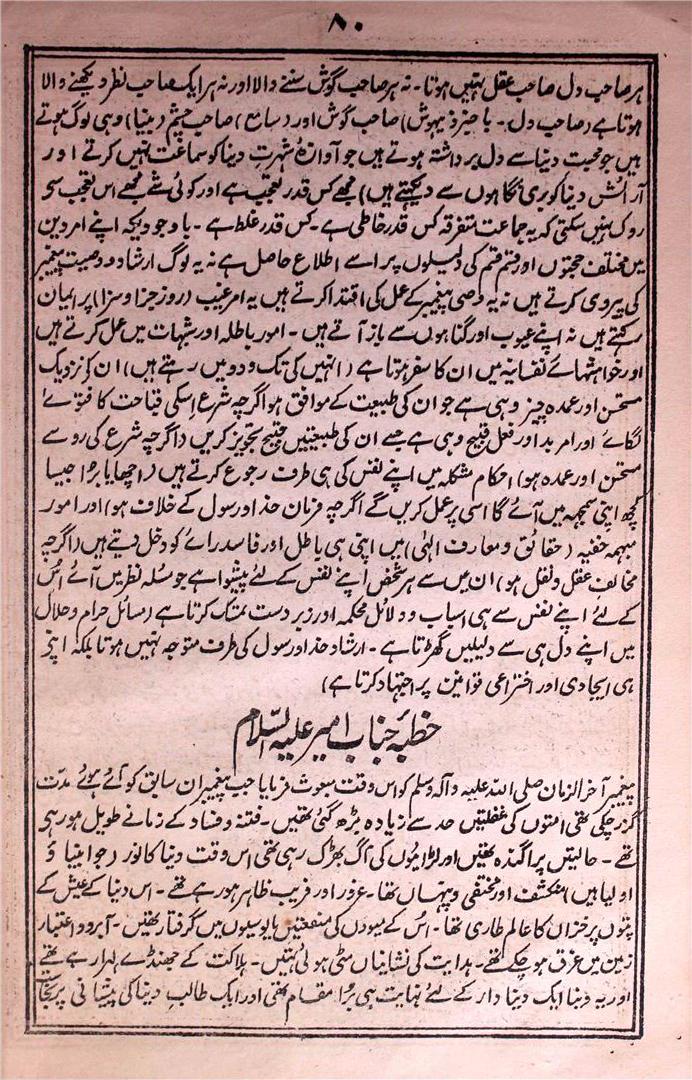 ۸۰
ہر صاحب دل صاحب عقل نہیں ہوتا۔ نہ ہر صاحب گوش سننے والا اور نہ ہر ایک صاحب نظر دیکھنے والا
ہوتا ہے (صاحب دل۔ با خبر ذیہوش) صاحب گوش اور (سامع) صاحب چشم (بینا) وہی لوگ ہوتے
ہیں جو محبت دنیا سے دل برداشتہ ہوتے ہیں جو آوازۂ شہرت دنیا کو سماعت نہیں کرتے اور
آرائش دنیا کو بری نگاہوں سے دیکھتے ہیں) مجھے کس قدر تعجب ہے اور کوئی شے مجھے اس تعجب سے
روک نہیں سکتی کہ یہ جماعت متفرقہ کس قدر خاطی ہے۔ کس قدر غلط ہے۔ با وجودیکہ اپنے امر دین
میں مختلف حجتوں اور قسم قسم کی دلیلوں پر اسے اطلاع حاصل ہے نہ یہ لوگ ارشاد و وصیت پیغمبر
کی پیروی کرتے ہیں نہ یہ وصی پیغمبر کے عمل کی اقتدا کرتے ہیں نہ یہ امر غیب (روز جزا و سزا) پر ایمان
رکھتے ہیں نہ اپنے عیوب اور گناہوں سے باز آتے ہیں۔ امور باطلہ اور شبہات میں عمل کرتے ہیں
اور خواہشہائے نفسانیہ میں ان کا سفر ہوتا ہے (انہیں کی تک و دو میں رہتے ہیں) ان کے نزدیک
مستحسن اور عمدہ چیز وہی ہے جو ان کی طبیعت کے موافق ہو اگرچہ شرع اسکی قباحت کا فتوےٰ
لگائے اور امر بد اور فعل قبیح وہی ہے جسے ان کی طبیعتیں قبیح تجویز کریں (اگرچہ شرع کی رو سے
مستحسن اور عمدہ ہو) احکام مشکلہ میں اپنے نفس کی ہی طرف رجوع کرتے ہیں (اچھا یا برا جیسا
کچھ اپنی سمجھ میں آئے گا اسی پر عمل کریں گے اگرچہ فرمان خدا و رسول کے خلاف ہو) اور امور
مبہمہ خفیہ (حقائق و معارف الہٰی) میں اپنی ہی باطل اور فاسد رائے کو دخل دیتے ہیں (اگرچہ
مخالف عقل و نقل ہو) ان میں سے ہر شخص اپنے نفس کے لئے پیشوا ہے جو مسئلہ نظر میں آئے اُس
کے لئے اپنے نفس سے ہی اسباب و دلائل محکمہ اور زبردست تمسک کرتا ہے (مسائل حرام و حلال
میں اپنے دل ہی سے دلیلیں گھڑتا ہے۔ ارشاد خدا و رسول کی طرف متوجہ نہیں ہوتا بلکہ اپنی
ہی ایجادی اور اختراعی قوانین پر اجتہاد کرتا ہے)
خطبۂ جناب امیر علیہ السّلام
پیغمبر آخر الزمان صلی اللہ علیہ و آلہ وسلم کو اس وقت مبعوث فرمایا جب پیغمبران سابق کو آئے ہوئے مدت
گزر چکی تھی امتوں کی غفلتیں حد سے زیادہ بڑھ گئی تھیں۔ فتنہ و فساد کے زمانے طویل ہو رہے
تھے۔ حالتیں پراگندہ تھیں اور لڑائیوں کی آگ بھڑک رہی تھی اس وقت دنیا کا نور (جو انبیا و
اولیا ہیں) منکشف اور مختفی و پنہاں تھا۔ غرور اور فریب ظاہر ہو رہے تھے۔ اس دنیا کے عیش کے
پتوں پر خزاں کا عالم طاری تھا۔ اُس کے میووں کی منفعتیں مایوسیوں میں گرفتار تھیں۔ آبرو و اعتبار
زمین میں غرق ہو چکے تھے۔ ہدایت کی نشانیاں مٹی ہوئی تھیں۔ ہلاکت کے جھنڈے لہرا رہے تھے
اور یہ دنیا ایک دنیا دار کے لئے نہایت ہی بُرا مقام تھی اور ایک طالب دنیا کی پیشانی پر